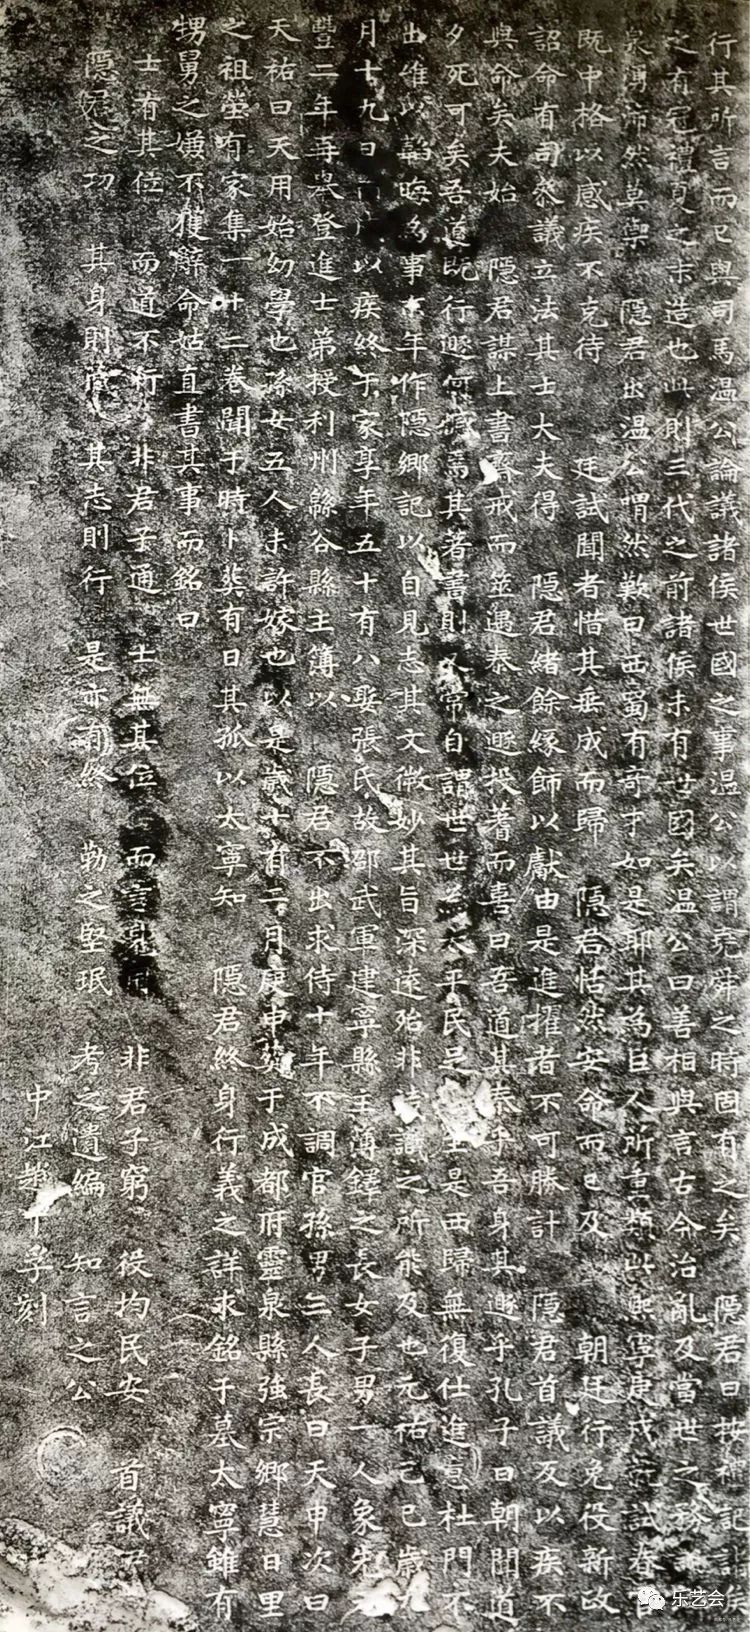 行其所言而已與司馬溫公論議諸侯世國之事溫公以謂堯舜之時固有之矣 隱君曰按禮記諸侯
之有冠禮夏之末造也此則三代之前諸侯未有世國矣溫公曰善相與言古今治亂及當世之務
泉湧沛然莫禦 隱君出溫公喟然歎曰西蜀有奇才如是耶其為巨人所重類此熙寧庚戌試春官
既中格以感疾不克待 廷試聞者惜其垂成而歸 隱君恬然安命而已及 朝廷行免役新政
詔命有司參議立法其士大夫得 隱君緒餘緣飾以獻由是進擢者不可勝計 隱君首議反以疾不
與命矣夫始 隱君謀上書齋戒而筮遇泰之遯投蓍而喜曰吾道其泰乎吾身其遯乎孔子曰朝聞道
夕死可矣吾道既行遯何憾焉其著書則又常自謂世世為太平民足矣 是西歸無復仕進意杜門不
出雖以韜晦為事 年作隱鄉記以自見志其文微妙其旨深遠殆非淺識之所能及也元祐己巳歲九
月十九日 以疾終于家享年五十有八娶張氏故邵武軍建寧縣主薄鐸之長女子男一人象先元
豐二年再舉登進士第授利州緜谷縣主簿以 隱君不出求侍十年不調官孫男三人長曰天申次曰
天祐曰天用始幼學也孫女五人未許嫁也以是歲十有二月庚申葬于成都府靈泉縣強宗鄉慧日里
之祖塋有家集一十二卷聞于時卜葬有日其孤以太寧知 隱君終身行義之詳求銘于墓太寧雖有
甥舅之嫌不獲辭命姑直書其事而銘曰
士有其位 而道不行 非君子通 士無其位 而言 非君子窮 役均民安 首議
隱君之功 其身則 其志則行 是亦有終 勒之堅珉 考之遺編 知言之公
中江趙 刻
乐艺会